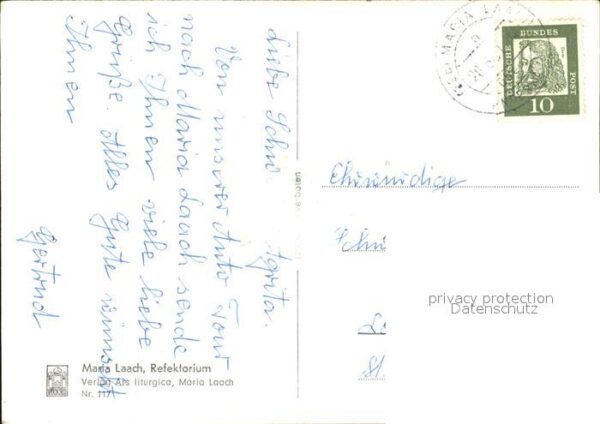 Liebe Schw Agrita.
Von unserer Auto Tour
nach Maria Laach sende
ich Ihnen viele liebe
Grüße. Alles Gute wünscht
Ihnen
Gertrud
Maria Laach, Refektorium
Verlag Ars liturgica, Maria Laach
Nr. 117
MARIA LAACH
DEUTSCHE BUNDES POST
10
Ehrwürdige
Schw
privacy protection
Datenschutz